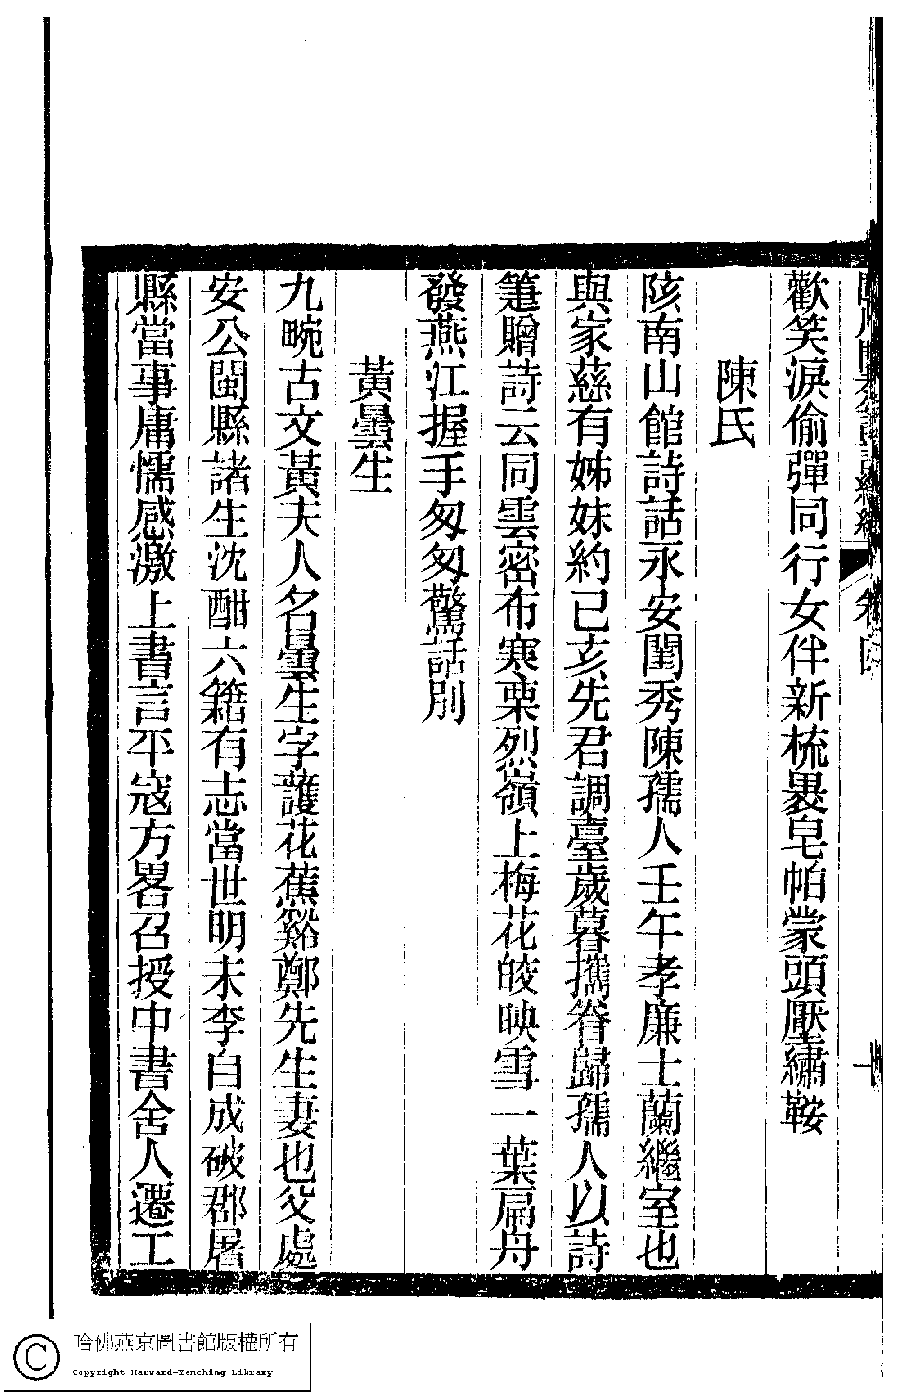 歡笑淚偷彈同行女伴新梳裹皂帕蒙頭壓繡鞍
陳氏
陔南山館詩話永安閨秀陳孺人壬午孝廉士蘭繼室也
與家慈有姊妹約己亥先君調臺歲暮攜眷歸孺人以詩
箑贈詩云同雲密布寒栗烈嶺上梅花皎映雪一葉扁舟
發燕江握手匆匆驚話別
黃曇生
九畹古文黃夫人名曇生字護花蕉谿鄭先生妻也父處
安公閩縣諸生沈酣六籍有志當世明末李自成破郡屠
縣當事庸懦感激上書言平寇方畧召授中書舍人遷工
卷四
哈佛燕京圖書館版權所有
Copyright Harvard-Yenching Library